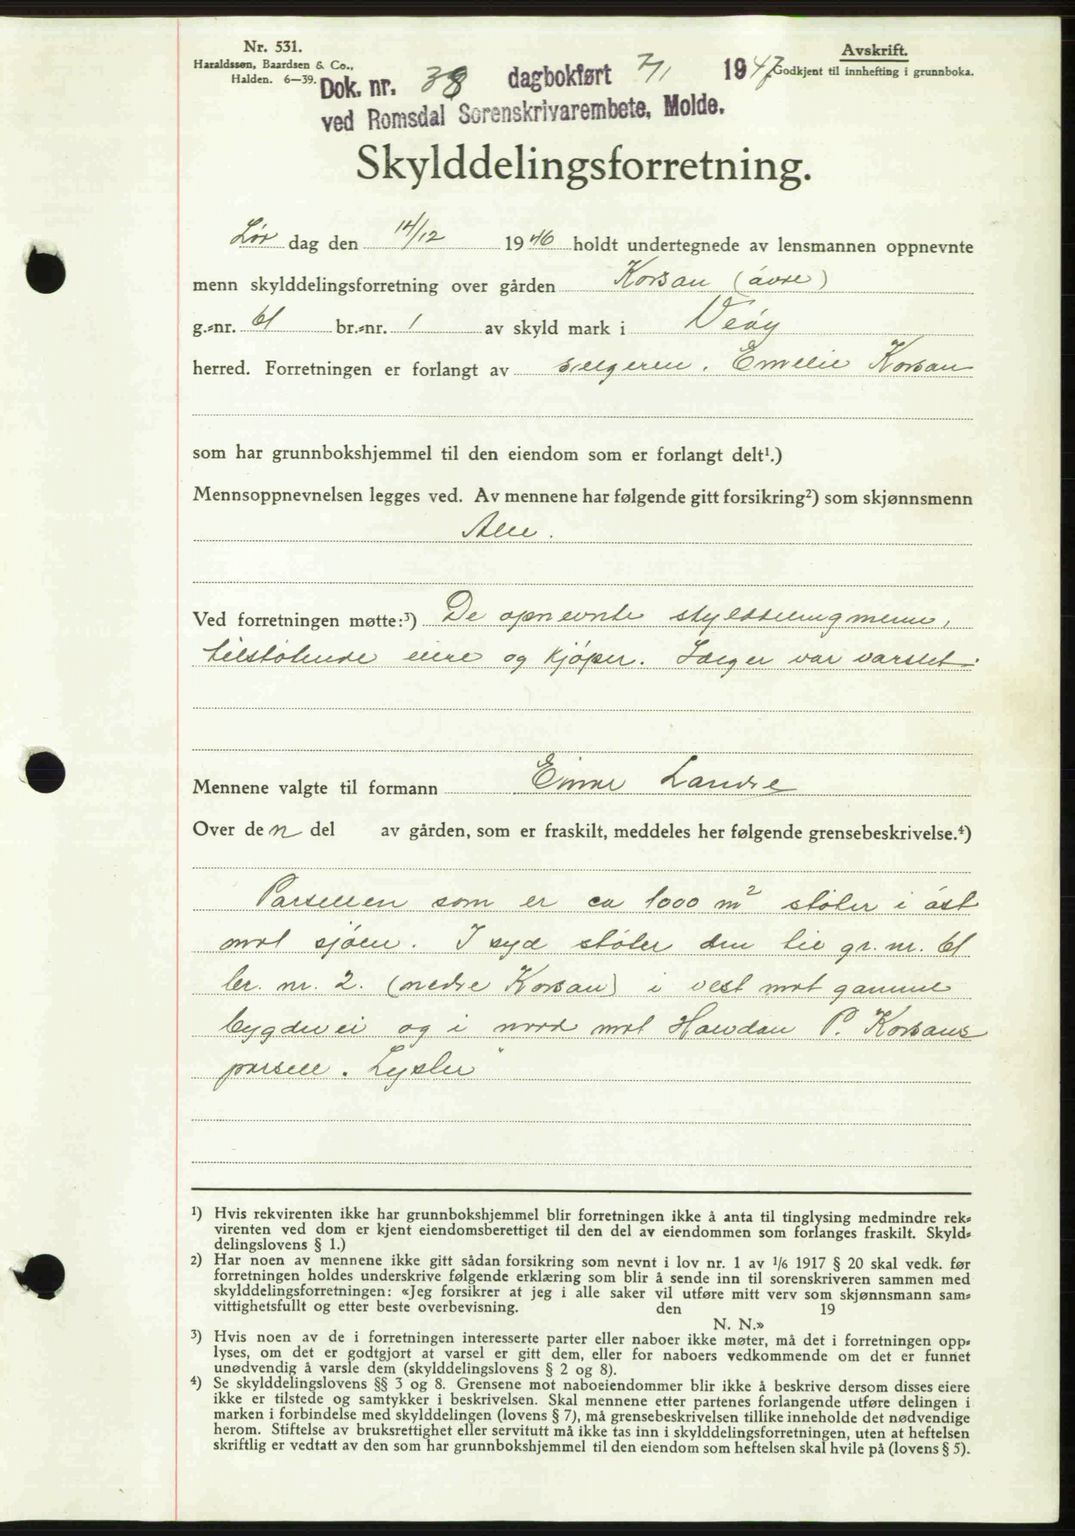 Nr. 531.
Haraldssøn, Baardsen & Co.,
Halden. 6—39.
Avskrift.
Godkjent til innhefting i grunnboka.
Dok. nr. 38 dagbokført 7/1 1947
ved Romsdal Sorenskrivarembete, Molde.
Skylddelingsforretning.
Lør dag den 14/12 1946 holdt undertegnede av lensmannen oppnevnte
menn skylddelingsforretning over gården Korsan (øvre)
g.-nr. 61 br.-nr. 1 av skyld mark i Veøy
herred. Forretningen er forlangt av selgeren. Emelie Korsan
som har grunnbokshjemmel til den eiendom som er forlangt delt¹.)
Mennsoppnevnelsen legges ved. Av mennene har følgende gitt forsikring²) som skjønnsmenn
Alle.
Ved forretningen møtte:³) De opnevnte skylddelingmenn,
tilstøtende eiere og kjøper. Sælger var varslet.
Mennene valgte til formann Einar Landre
Over den del av gården, som er fraskilt, meddeles her følgende grensebeskrivelse.⁴)
Parsellen som er ca 1000 m² støter i øst
mot sjøen. I syd støter den til gr. nr. 61
br. nr. 2. (nedre Korsan) i vest mot gamme
bygdevei og i nord mot Halvdan P. Korsans
parsell. Lysli"
¹) Hvis rekvirenten ikke har grunnbokshjemmel blir forretningen ikke å anta til tinglysing medmindre rek-
virenten ved dom er kjent eiendomsberettiget til den del av eiendommen som forlanges fraskilt. Skyld-
delingslovens § 1.)
²) Har noen av mennene ikke gitt sådan forsikring som nevnt i lov nr. 1 av 1/6 1917 § 20 skal vedk. før
forretningen holdes underskrive følgende erklæring som blir å sende inn til sorenskriveren sammen med
skylddelingsforretningen: «Jeg forsikrer at jeg i alle saker vil utføre mitt verv som skjønnsmann sam-
vittighetsfullt og etter beste overbevisning. den 19
N. N.»
³) Hvis noen av de i forretningen interesserte parter eller naboer ikke møter, må det i forretningen opp-
lyses, om det er godtgjort at varsel er gitt dem, eller for naboers vedkommende om det er funnet
unødvendig å varsle dem (skylddelingslovens § 2 og 8).
⁴) Se skylddelingslovens §§ 3 og 8. Grensene mot naboeiendommer blir ikke å beskrive dersom disses eiere
ikke er tilstede og samtykker i beskrivelsen. Skal mennene etter partenes forlangende utføre delingen i
marken i forbindelse med skylddelingen (lovens § 7), må grensebeskrivelsen tillike inneholde det nødvendige
herom. Stiftelse av bruksrettighet eller servitutt må ikke tas inn i skylddelingsforretningen, uten at heftelsen
skriftlig er vedtatt av den som har grunnbokshjemmel til den eiendom som heftelsen skal hvile på (lovens § 5).